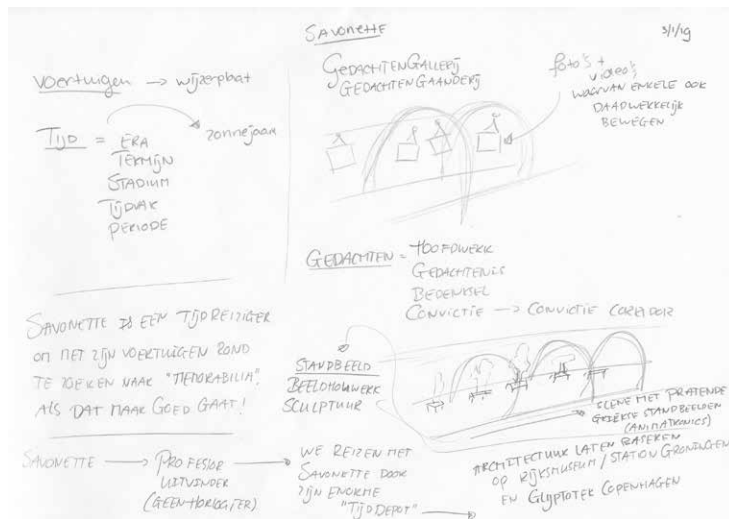 SAVONETTE
3/1/19
VOERTUIGEN → WIJZERPLAAT
TIJD = ERA
ZONNEJAAR
TERMIJN
STADIUM
TIJDVAK
PERIODE
GEDACHTENGALLERIJ
GEDACHTENGAANDERIJ
FOTO'S +
VIDEO'S
WAARVAN ENKELE OOK
DAADWERKELIJK
BEWEGEN
GEDACHTEN = HOOFDWERK
GEDACHTENIS
BEDENKSEL
CONVICTIE → CONVICTIE CORRIDOR
SAVONETTE IS EEN TIJDREIZIGER
OM MET ZIJN VOERTUIGEN ROND
TE ZOEKEN NAAR "MEMORABILIA".
ALS DAT MAAR GOED GAAT!
STANDBEELD
BEELDHOUWERK
SCULPTUUR
SCENE MET PRATENDE
GRIEKSE STANDBEELDEN
(ANIMATRONICS)
SAVONETTE → PROFESSOR
UITVINDER
(GEEN HORLOGIER)
WE REIZEN MET
SAVONETTE DOOR
ZIJN ENORME
"TIJDDEPOT"
ARCHITECTUUR LATEN BASEREN
OP RIJKSMUSEUM / STATION GRONINGEN
EN GLYPTOTEK COPENHAGEN